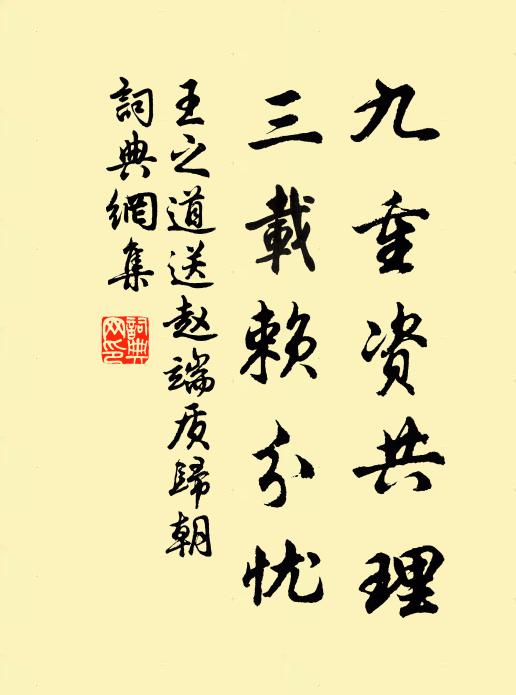 九重资共理
三載赖分忧
王之道送赵端质歸朝
詞典網集
詞典网印